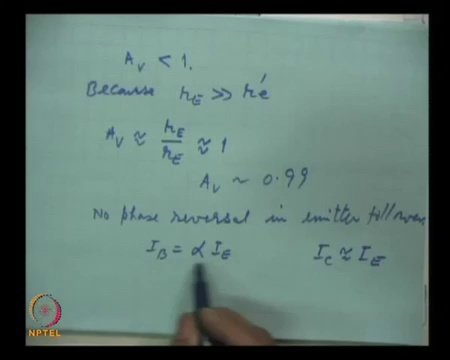 A_V < 1.
Because r_E >> r'e
A_V ≈ r_E/r_E ≈ 1
A_V ~ 0.99
No phase reversal in emitter follower
I_B = α I_E    I_C ≈ I_E
NPTEL